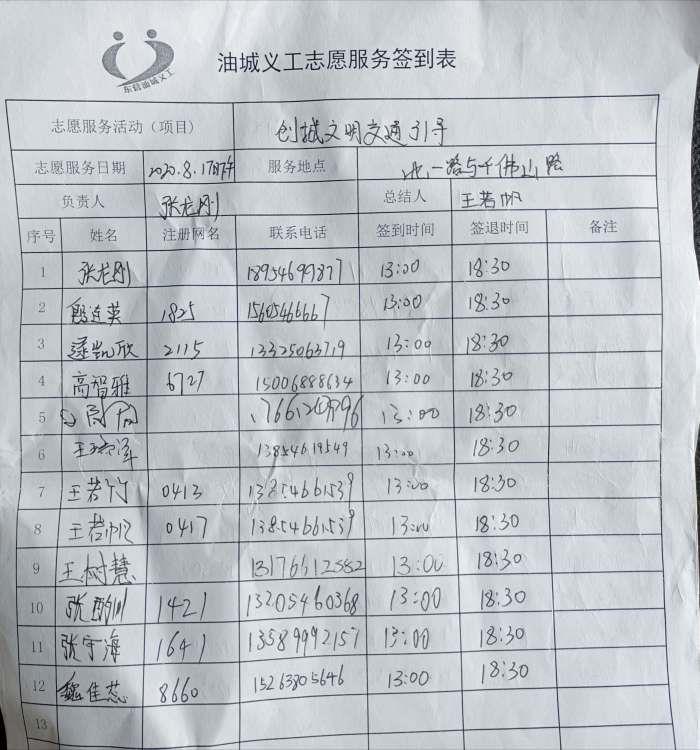 东营油城义工
油城义工志愿服务签到表
志愿服务活动（项目） 创城文明交通引导
志愿服务日期 2020.8.17下午 服务地点 北一路与千佛山路
负责人 张龙刚 总结人 王若帆
序号 姓名 注册网名 联系电话 签到时间 签退时间 备注
1 张龙刚 18954699877 13:00 18:30
2 殷连英 1825 15605466667 13:00 18:30
3 逯凯欣 2115 13325063719 13:00 18:30
4 高智雅 6727 15006888634 13:00 18:30
5 13:00 18:30
6 13854619549 13:00 18:30
7 王若竹 0413 13854661539 13:00 18:30
8 王若帆 0417 13854661539 13:00 18:30
9 王树慧 13176612582 13:00 18:30
10 张 1421 13205460368 13:00 18:30
11 张宇海 1641 13589992157 13:00 18:30
12 魏佳蕊 8660 15263805646 13:00 18:30
13